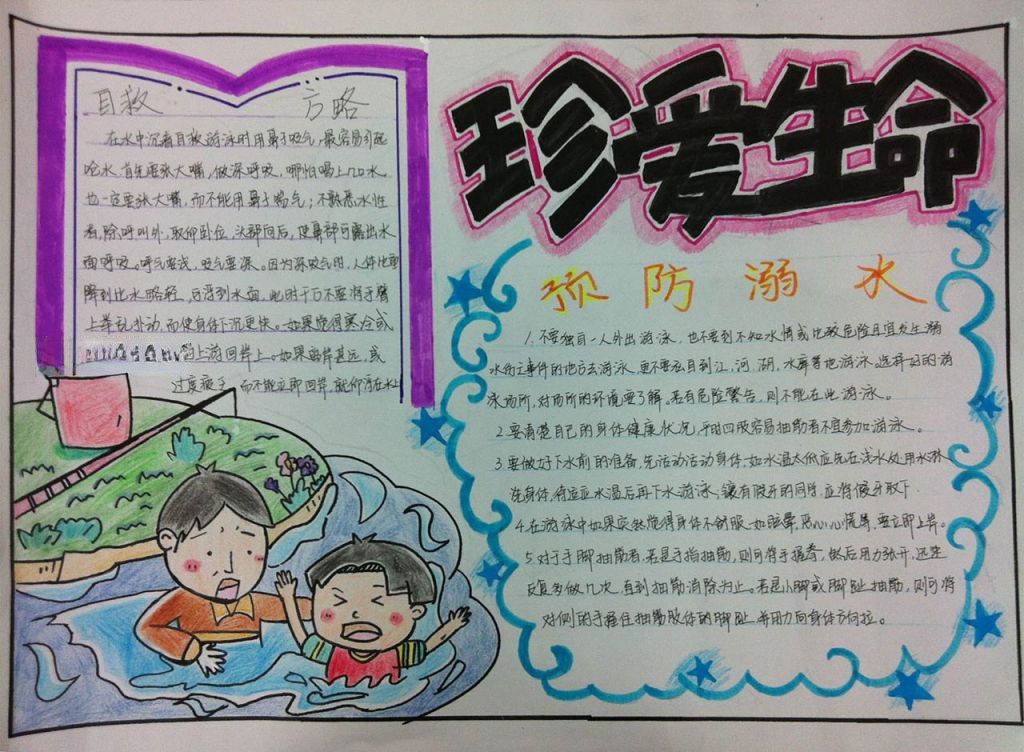 珍爱生命
自救 方略
在水中沉着自救游泳时用鼻子吸气,最容易引起
呛水,首先要张大嘴,做深呼吸,哪怕喝上几口水,
也一定要张大嘴,而不能用鼻子吸气;不熟悉水性
者,除呼叫外,取仰卧位,头部向后,使鼻部可露出水
面呼吸。呼气要浅,吸气要深。因为深吸气时,人体比重
降到比水略轻,可浮到水面,此时千万不要将手臂
上举乱扑动,而使身体下沉更快。如果觉得寒冷或
马上游回岸上。如果离岸甚远,或
过度疲乏 而不能立即回岸,就仰浮在水上
预防溺水
1.不要独自一人外出游泳,也不要到不知水情或比较危险且宜发生溺
水伤亡事件的地方去游泳,更不要私自到江,河,湖,水库等地游泳。选择好的游
泳场所,对场所的环境要了解。若有危险警告,则不能在此游泳。
2.要清楚自己的身体健康状况,平时四肢容易抽筋者不宜参加游泳。
3.要做好下水前的准备,先活动活动身体,如水温太低应先在浅水处用水淋
洗身体,待适应水温后再下水游泳,镶有假牙的同学,应将假牙取下.
4.在游泳中如果突然觉得身体不舒服,如眩晕,恶心心慌等,要立即上岸。
5.对于手脚抽筋者,若是手指抽筋,则可将手握拳,然后用力张开,迅速
反复多做几次,直到抽筋消除为止。若是小脚或脚趾抽筋,则可将
对侧的手握住抽筋肢体的脚趾 并用力向身体方向拉。